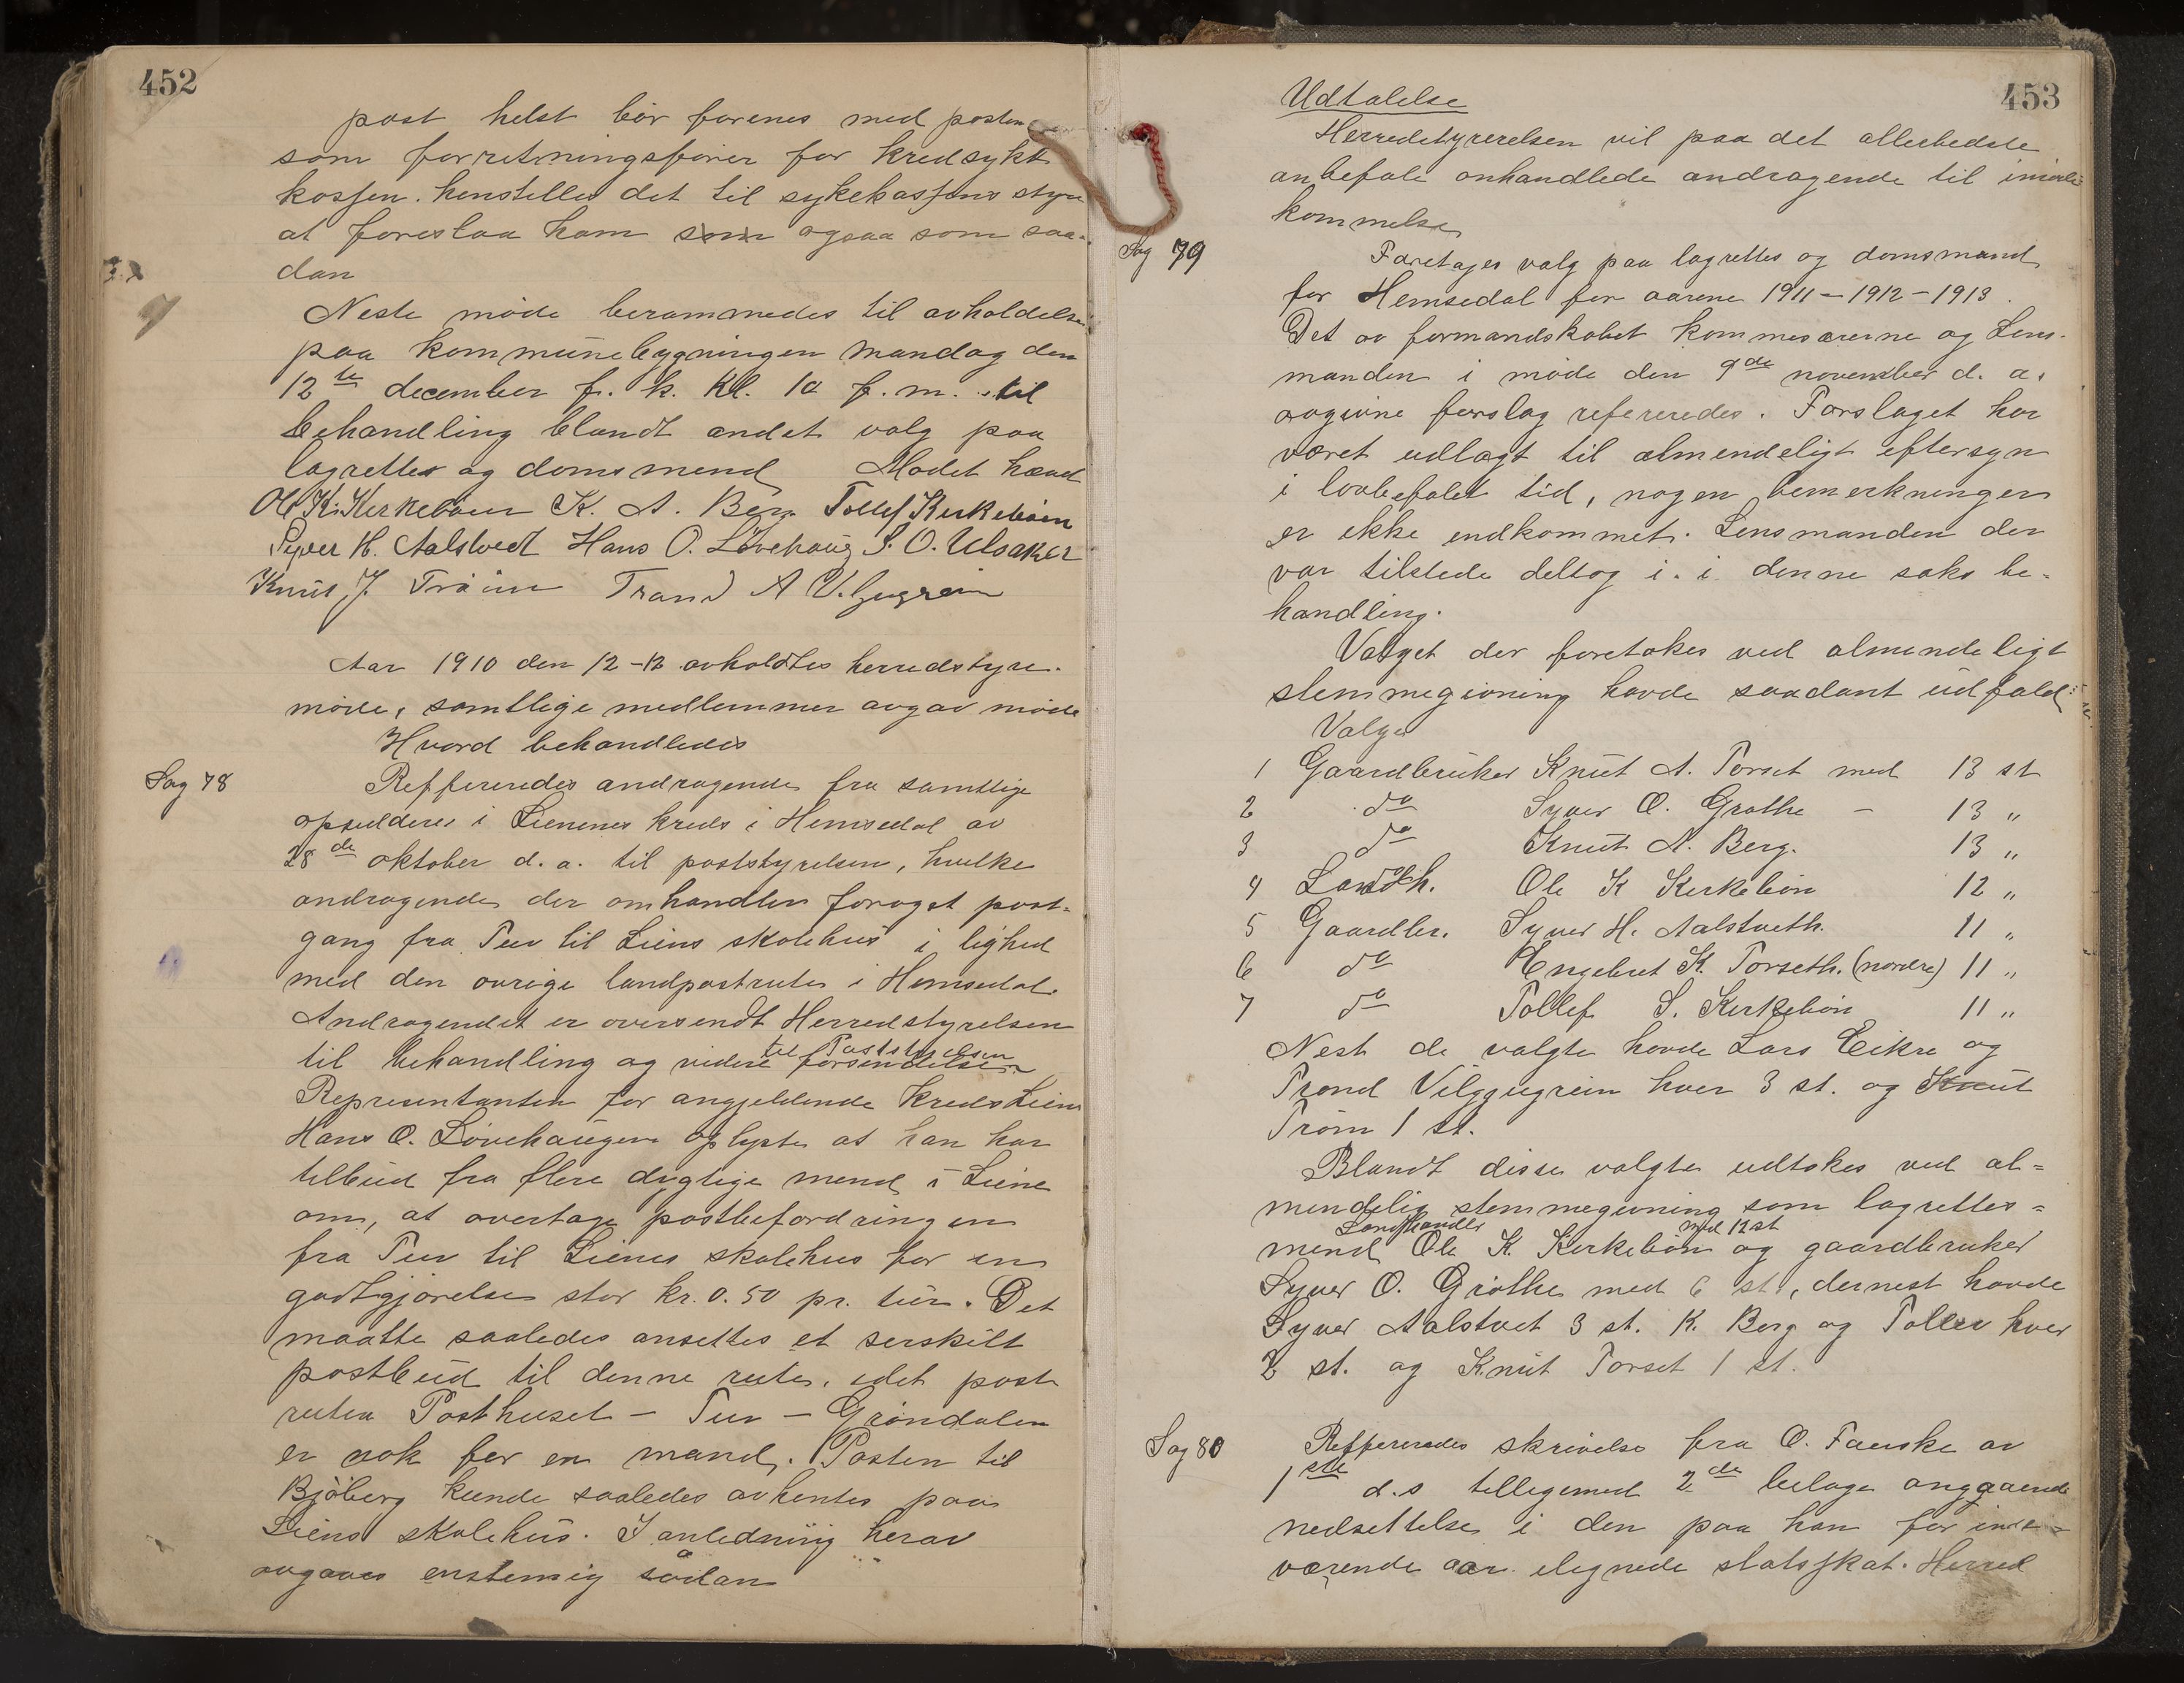 452
post helst bör forenes med posten
som forretningsförer for kredsyke
kassen. henstilles det til sykekassens styre
at foreslaa ham som ogsaa som saa-
dan
Neste möde berammedes til avholdelse
paa kommunebygningen mandag den
12te december f. k. Kl. 10 f. m. til
behandling blandt andet valg paa
lagrettes og domsmend Mödet hævet
Ole K. Kirkeböen K. A. Berg Tollef Kirkeböen
Syver H. Aalstvedt Hans O. Lövehaug S. O. Ulsaker
Knut J. Tröim Trand A
Aar 1910 den 12-12 avholdtes herredstyre-
möde, samtlige medlemmer avgav möde
Hvord behandledes
Sag 78
Reffereredes andragende fra samtlige
opsiddere i Lienenes kreds i Hemsedal av
28de oktober d. a. til poststyrelsen, hvilke
andragende der omhandler foröget post-
gang fra Tuv til Liens skolehus i lighed
med den övrige landpostrute i Hemsedal.
Andragendet er oversendt Herredstyrelsen
til behandling og videre forsendelse til Poststyrelsen
Representanten for angjeldende Kreds Liene
Hans O. Lövehaugen oplyste at han har
tilbud fra flere dygtige mend i Liene
om, at overtage postbefordringen
fra Tuv til Lienes skolehus for en
godtgjörelse stor kr. 0.50 pr. tur. Det
maatte saaledes ansettes et serskilt
postbud til denne rute, idet post
ruten Posthuset - Tuv - Gröndalen
er nok for en mand. Posten til
Bjöberg kunde saaledes avhentes paa
Liens skolehus. I anledning herav
avgaves enstemig sådan
453
Udtalelse
Herredstyrerelsen vil paa det allerbedste
anbefale omhandlede andragende til imöde-
kommelse
Sag 79
Foretages valg paa lagrettes og domsmænd
for Hemsedal for aarene 1911 - 1912 - 1913.
Det av formandskabet kommesærerne og Lens-
manden i möde den 9de november d. a.
avgivne forslag refereredes. Forslaget har
været udlagt til almendeligt eftersyn
i lovbefalet tid, nogen bemerkninger
er ikke indkommet. Lensmanden der
var tilstede deltog i. i denne saks be-
handling.
Valget der foretokes ved almendeligt
stemmegivning havde saadant udfald:
Valgt
1 Gaardbruker Knut A. Torset med 13 st
2 do Syver O. Gröthe - 13 "
3 do Knut A. Berg. 13 "
4 Landh. Ole K Kirkeböen 12 "
5 Gaardbr. Syver H. Aalstveth. 11 "
6 do Engebret K. Torseth. (nordre) 11 "
7 do Tollef S. Kirkeböen 11 "
Nest de valgte havde Lars Eikre og
Trond Ulggugrein hver 3 st. og Knut
Tröim 1 st.
Blandt disse valgte udtokes ved al-
mendelig stemmegivning som lagrettes-
mend Landhandler Ole K. Kirkeböen med 12 st og gaardbruker
Syver O. Gröthe med 6 st, dernest havde
Syver Aalstvet 3 st. K. Berg og Tollev hver
2 st. og Knut Torset 1 st.
Sag 80
Reffereredes skrivelse fra O. Fauske av
1ste d.s tillegemed 2de bilage angaaende
nedsettelse i den paa han for inde-
værende aar ilignede statsskat. Herred